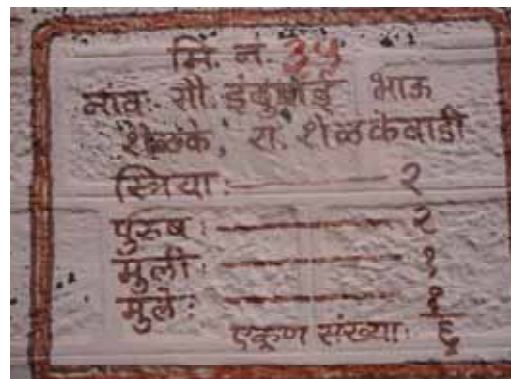 मि. नं. ३५
नांव:- सौ. इंदुबाई भाऊ
शेळके, रा. शेळकेवाडी
स्त्रिया:- २
पुरुष:- २
मुली:- १
मुले:- १
एकूण संख्या. ६